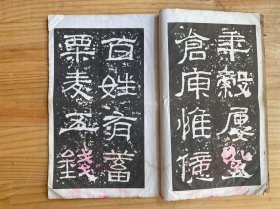 年穀屢登
倉庾惟億
百姓有蓄
粟麦五錢